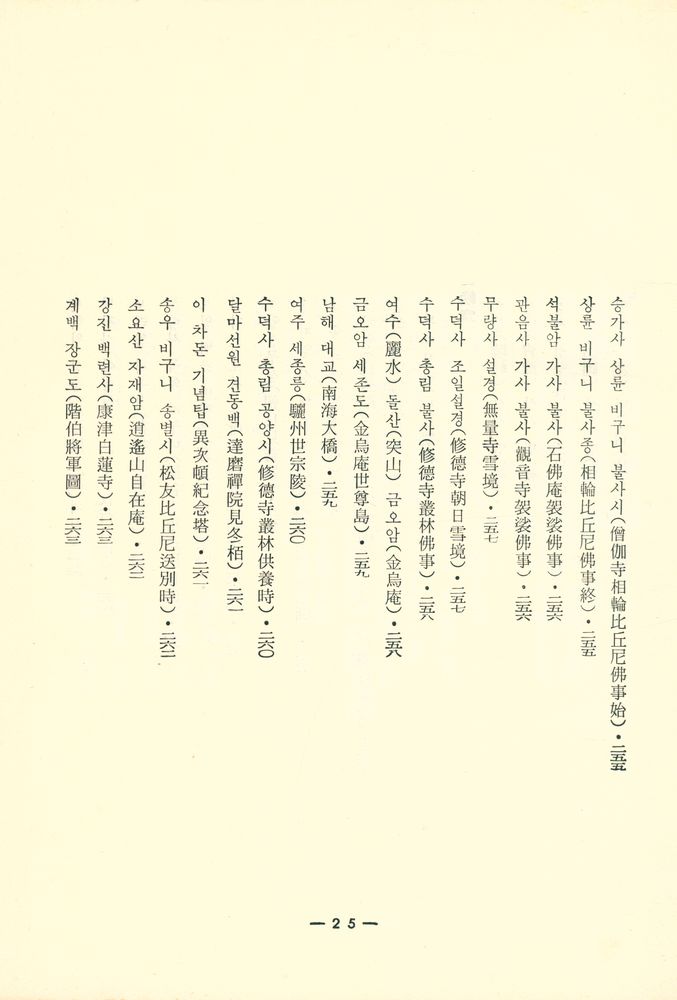 승가사 상륜 비구니 불사시(僧伽寺相輪比丘尼佛事始)•二五五
상륜 비구니 불사종(相輪比丘尼佛事終)•二五五
석불암 가사 불사(石佛庵袈裟佛事)•二五六
관음사 가사 불사(觀音寺袈裟佛事)•二五六
무량사 설경(無量寺雪境)•二五七
수덕사 조일설경(修德寺朝日雪境)•二五七
수덕사 총림 불사(修德寺叢林佛事)•二五八
여수(麗水) 돌산(突山) 금오암(金烏庵)•二五八
금오암 세존도(金烏庵世尊島)•二五九
남해 대교(南海大橋)•二五九
여주 세종릉(驪州世宗陵)•二六〇
수덕사 총림 공양시(修德寺叢林供養時)•二六〇
달마선원 견동백(達磨禪院見冬栢)•二六一
이 차돈 기념탑(異次頓紀念塔)•二六一
송우 비구니 송별시(松友比丘尼送別時)•二六二
소요산 자재암(逍遙山自在庵)•二六二
강진 백련사(康津白蓮寺)•二六三
계백 장군도(階伯將軍圖)•二六三
— 25 —